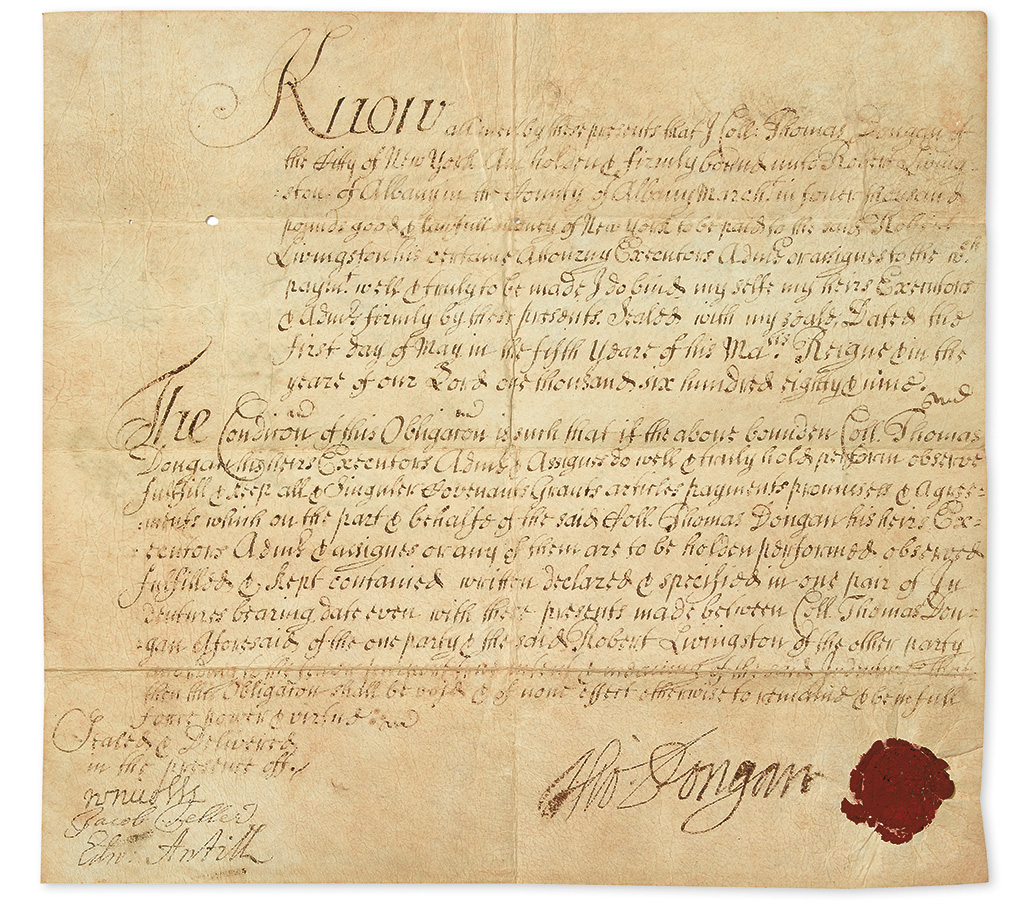 Know all men by these presents that I Coll: Thomas Dongan of
the Citty of New York Am holden & firmly bound unto Robert Living-
ston of Albany in the County of Albany March:t in foner thousand
pounds good & lawfull money of New York to be paid to the said Robert
Livingston his certaine Attourny Executors Admrs or assignes to the wch
paymt. well & truly to be made I do bind my selfe my heirs Executors
& Admrs firmly by these presents. Sealed with my seale, Dated the
first day of May in the fifth Yeare of his Maties. Reigne & in the
yeare of our Lord one thousand six hundred eighty & nine.
The Condition of this Obligaton is such that if the above bounden Coll. Thomas
Dongan his heirs Executors Admrs & Assignes do well & truly hold perform observe
fulfill & keep all & Singuler Covenants Grants articles payments promises & Agree-
ments which on the part & behalfe of the said Coll. Thomas Dongan his heirs Ex-
ecutors Admrs & assignes or any of them are to be holden performed observed
fulfilled & kept contained written declared & specified in one pair of In
dentures bearing date even with these presents made between Coll. Thomas Don-
gan Aforesaid of the one party & the said Robert Livingston of the other party
according to the of the said Indenture That
then this Obligaton shall be void & of none effect otherwise to remaine & be in full
force power & virtue
Sealed & Delivered
in the presence off.
Jacob Teller
Edw: Antill
Tho Dongan